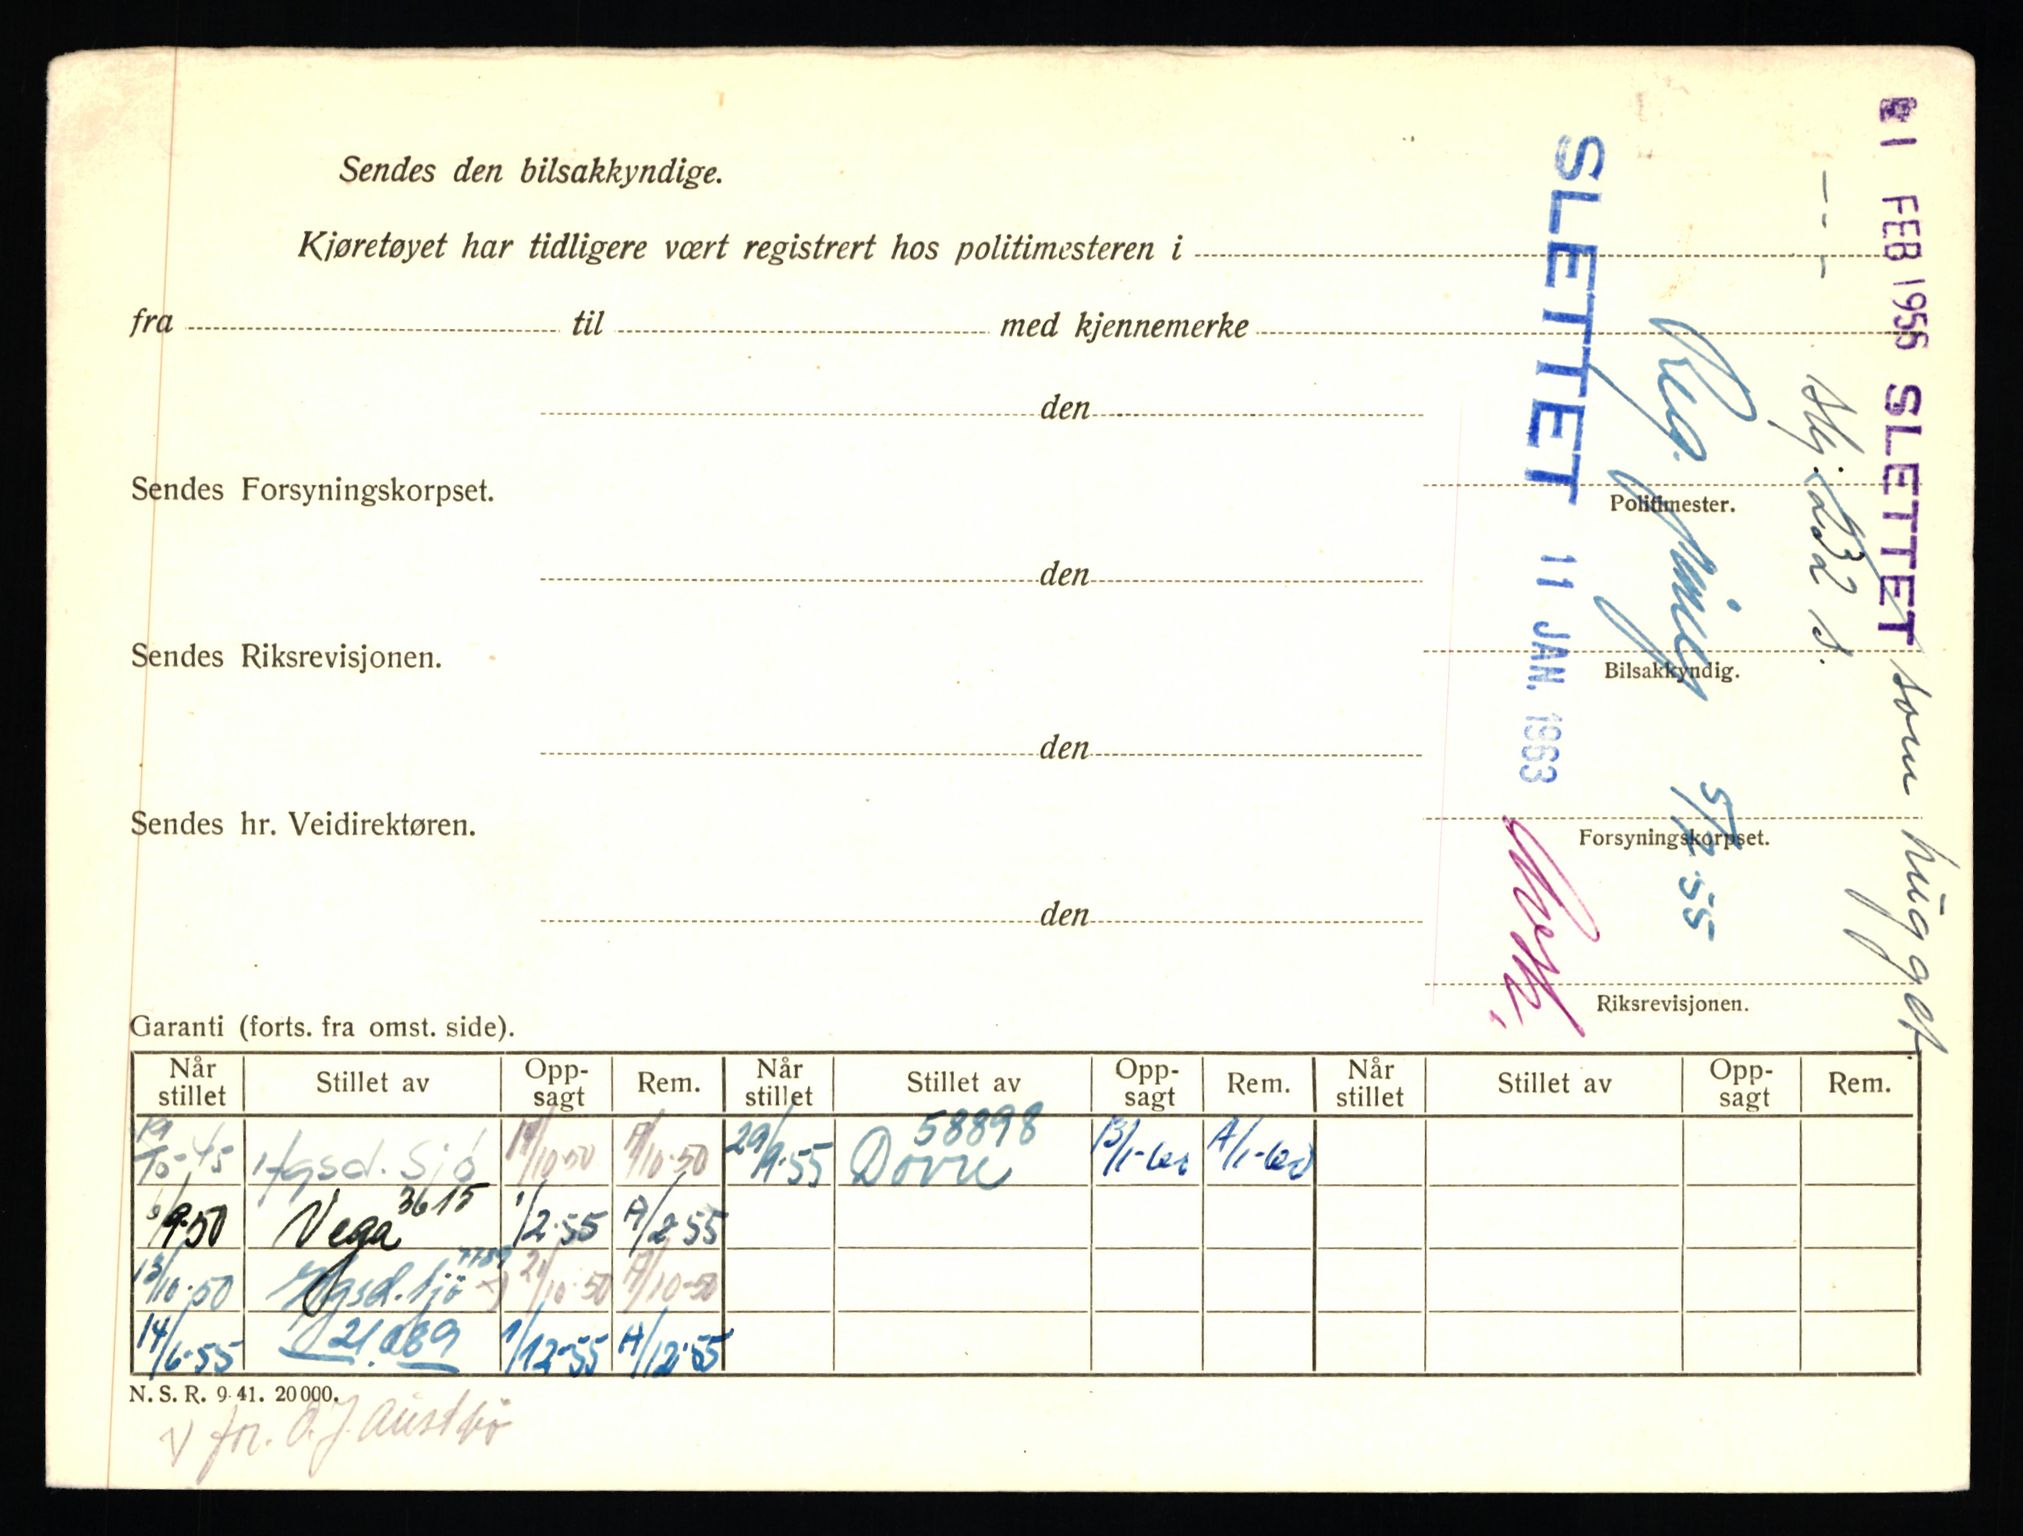 Sendes den bilsakkyndige.
Kjøretøyet har tidligere vært registrert hos politimesteren i
fra til med kjennemerke
den
Sendes Forsyningskorpset.
Politimester.
den
Sendes Riksrevisjonen.
Bilsakkyndig.
den
Sendes hr. Veidirektøren.
Forsyningskorpset.
den
Riksrevisjonen.
SLETTET 11 JAN. 1963
Reg.
5/7-55
skj. 232 s.
1 FEB 1956 SLETTET som hugget
Garanti (forts. fra omst. side).
Når stillet Stillet av Opp-sagt Rem. Når stillet Stillet av Opp-sagt Rem. Når stillet Stillet av Opp-sagt Rem.
19/10-45 Hgsd. Sjö /10-50 A/10-50 29/9-55 Dovre 58898 A/1-60
/9-50 Vega 3615 1/2-55 A/2-55
13/10-50 Hgsd. Sjö 21/10-50 A/10-50
14/6-55 21.089 1/12-55 A/12-55
N. S. R. 9-41. 20 000.
V for. O. J. Austbö